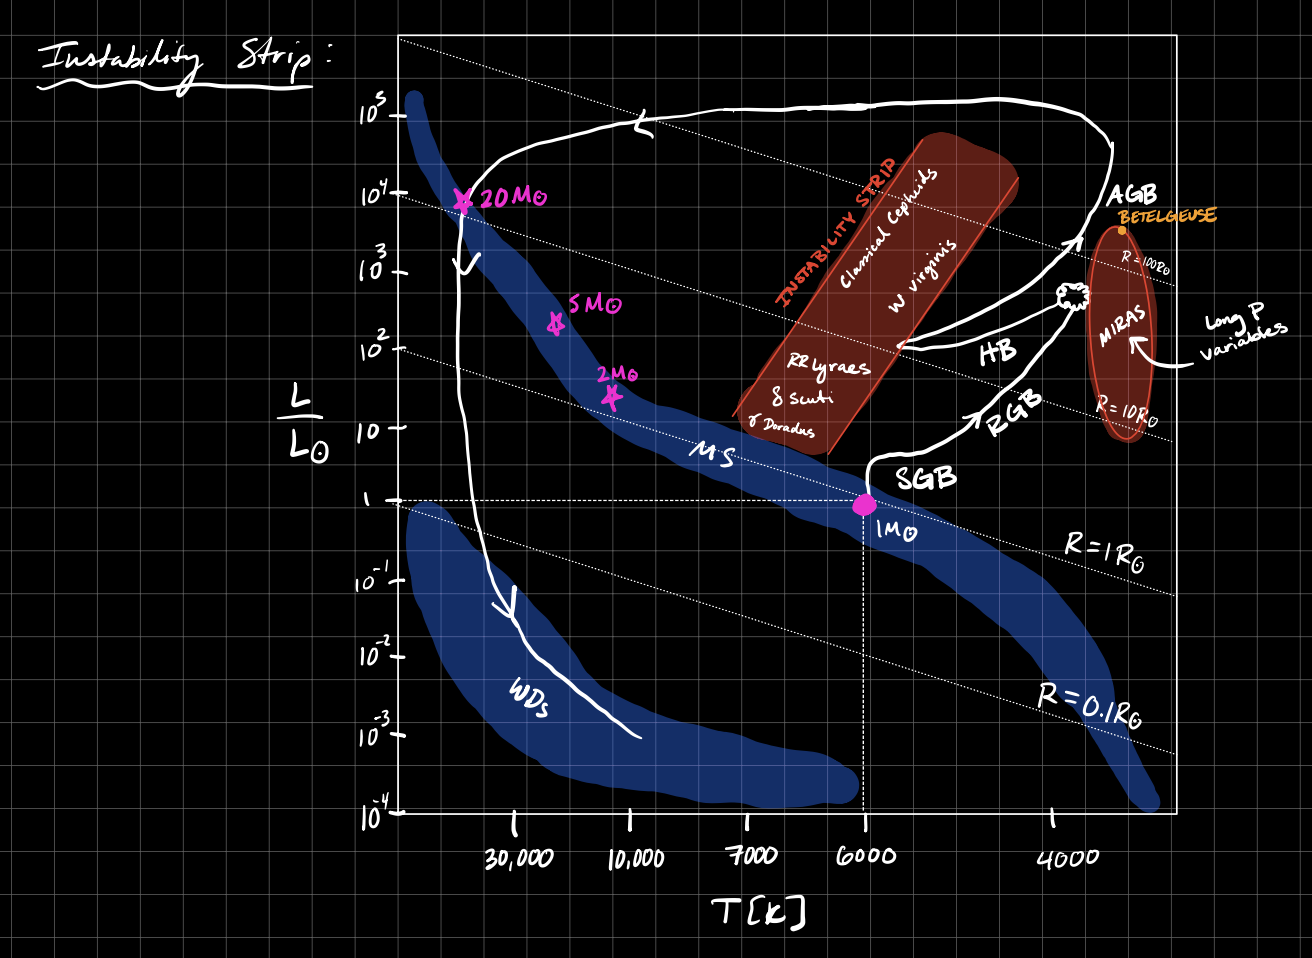 Instability Strip:
10⁵
10⁴
10³
10²
10
1
10⁻¹
10⁻²
10⁻³
10⁻⁴
L
L⊙
20M⊙
5M⊙
2M⊙
1M⊙
MS
WDs
INSTABILITY STRIP
Classical Cepheids
W Virginis
RR Lyraes
δ Scuti
γ Doradus
AGB
BETELGIEUSE
R=100R⊙
MIRAS
Long P
Variables
R=10R⊙
HB
RGB
SGB
R=1R⊙
R=0.1R⊙
30,000
10,000
7000
6000
4000
T[K]